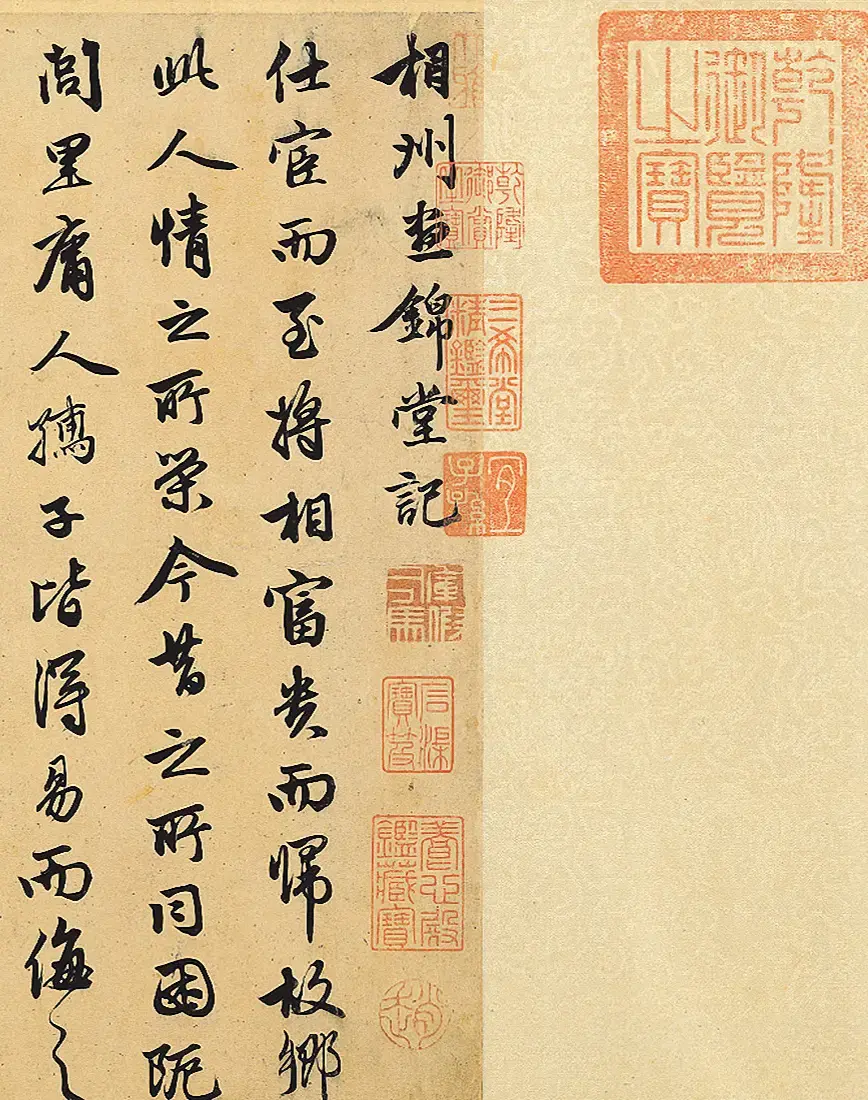 乾隆御覽之寶
乾隆御賞之寶
三希堂精鑑璽
宜子孫
相州晝錦堂記
石渠寶笈
養心殿鑑藏寶
趙
仕宦而至將相富貴而歸故鄉
此人情之所榮今昔之所同困阨
閭里庸人孺子皆得易而侮之